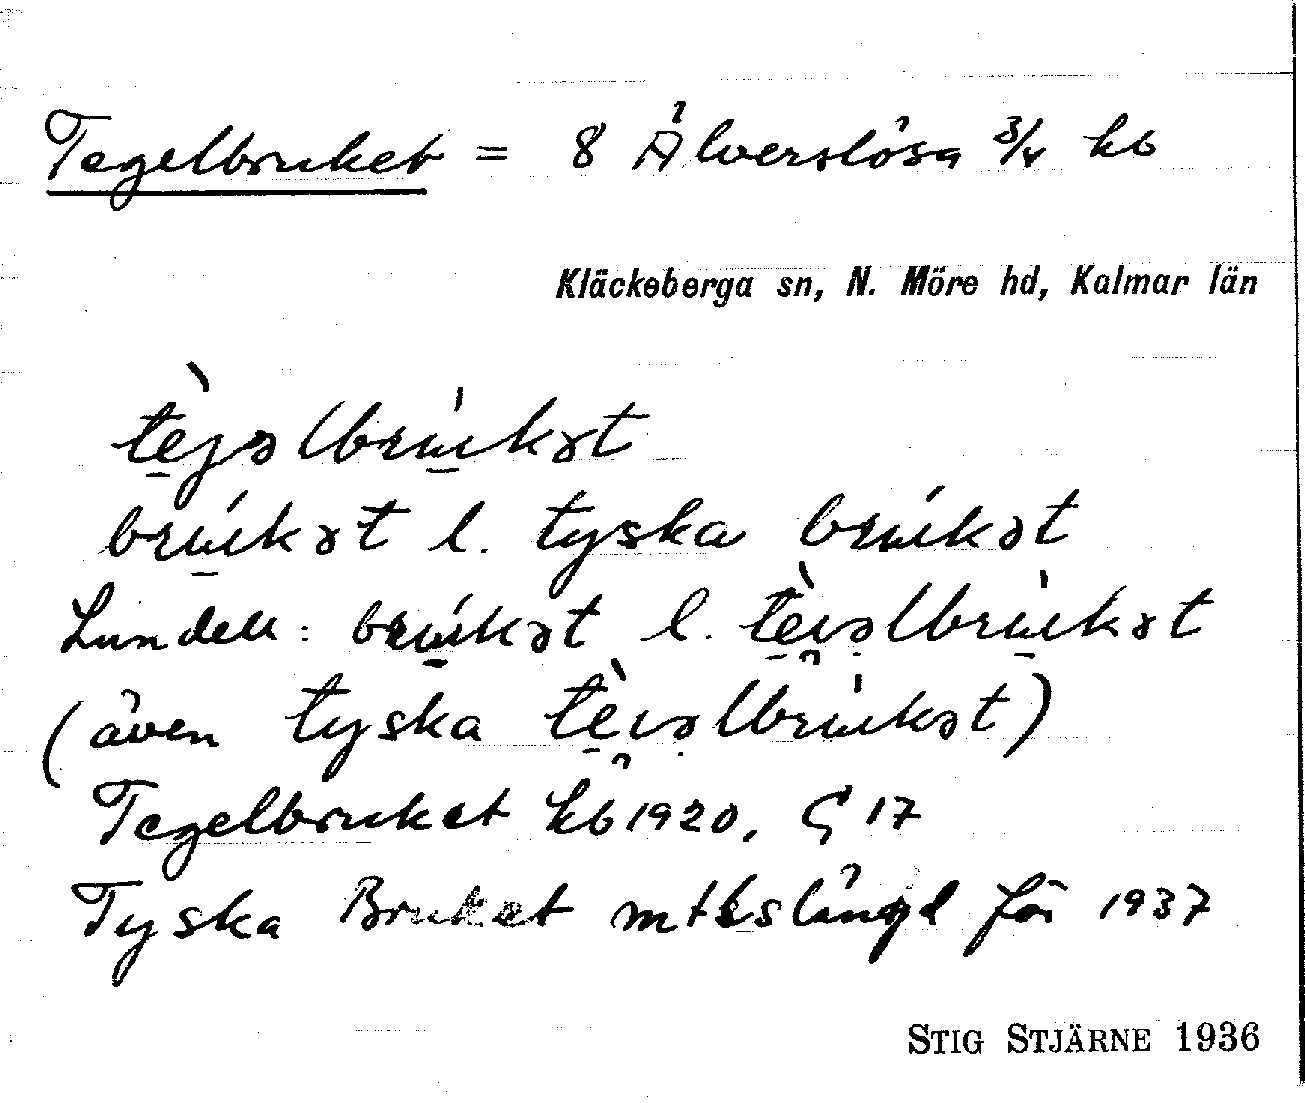 Tegelbruket = 8 Älverslösa 3/4 kb
Kläckeberga sn, N. Möre hd, Kalmar län
tèjəlbrúkət
brúkət l. tyska brúkət
Lundell: brúkət l. tèi̯əlbrúkət
(även tyska tèi̯əlbrúkət)
Tegelbruket kb 1920, G 17
Tyska Bruket mtlslängd för 1937
STIG STJÄRNE 1936